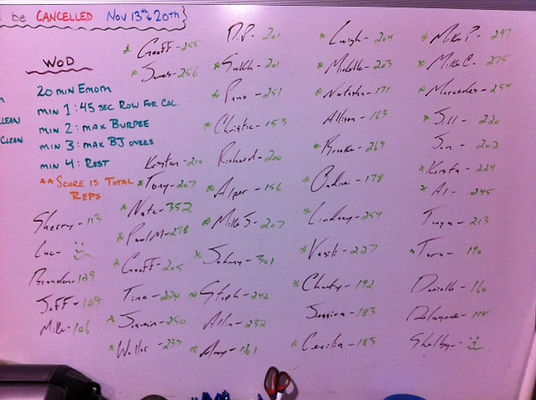 be CANCELLED Nov 13th & 20th
WOD
20 min Emom
min 1: 45 sec Row for Cal.
min 2: max Burpee
min 3: max BJ overs
min 4: Rest
**Score is Total
Reps
LEAN
CLEAN
Sherry - 113
Luc -
Brandon - 129
Jeff - 109
Mike - 106
* Geoff - 255
* James - 256
Kristen - 210
* Tony - 207
* Nate - 352
* Paul M - 278
* Geoff - 205
Tina - 224
* Jamin - 250
* Walter - 237
D.P. 201
* Sukh - 201
* Pino - 251
* Christie - 153
Richard - 200
* Alper - 156
* Mike S - 207
* Johnny - 301
* Steph - 242
Alla - 232
* Amy - 161
* Leigh - 204
* Michelle - 263
* Natasha - 171
Allison - 165
* Brooke - 269
* Carlie - 178
* Lindsay - 254
* Vasili - 227
* Charity - 192
Jessica - 183
* Cecilia - 185
* Mike P. - 297
* Mike C. - 275
* Mercedes - 254
* Jill - 220
Jen - 202
* Krista - 224
* Al - 245
Tanya - 213
* Tara - 190
Danielle - 160
Delayne - 114
Shelby -